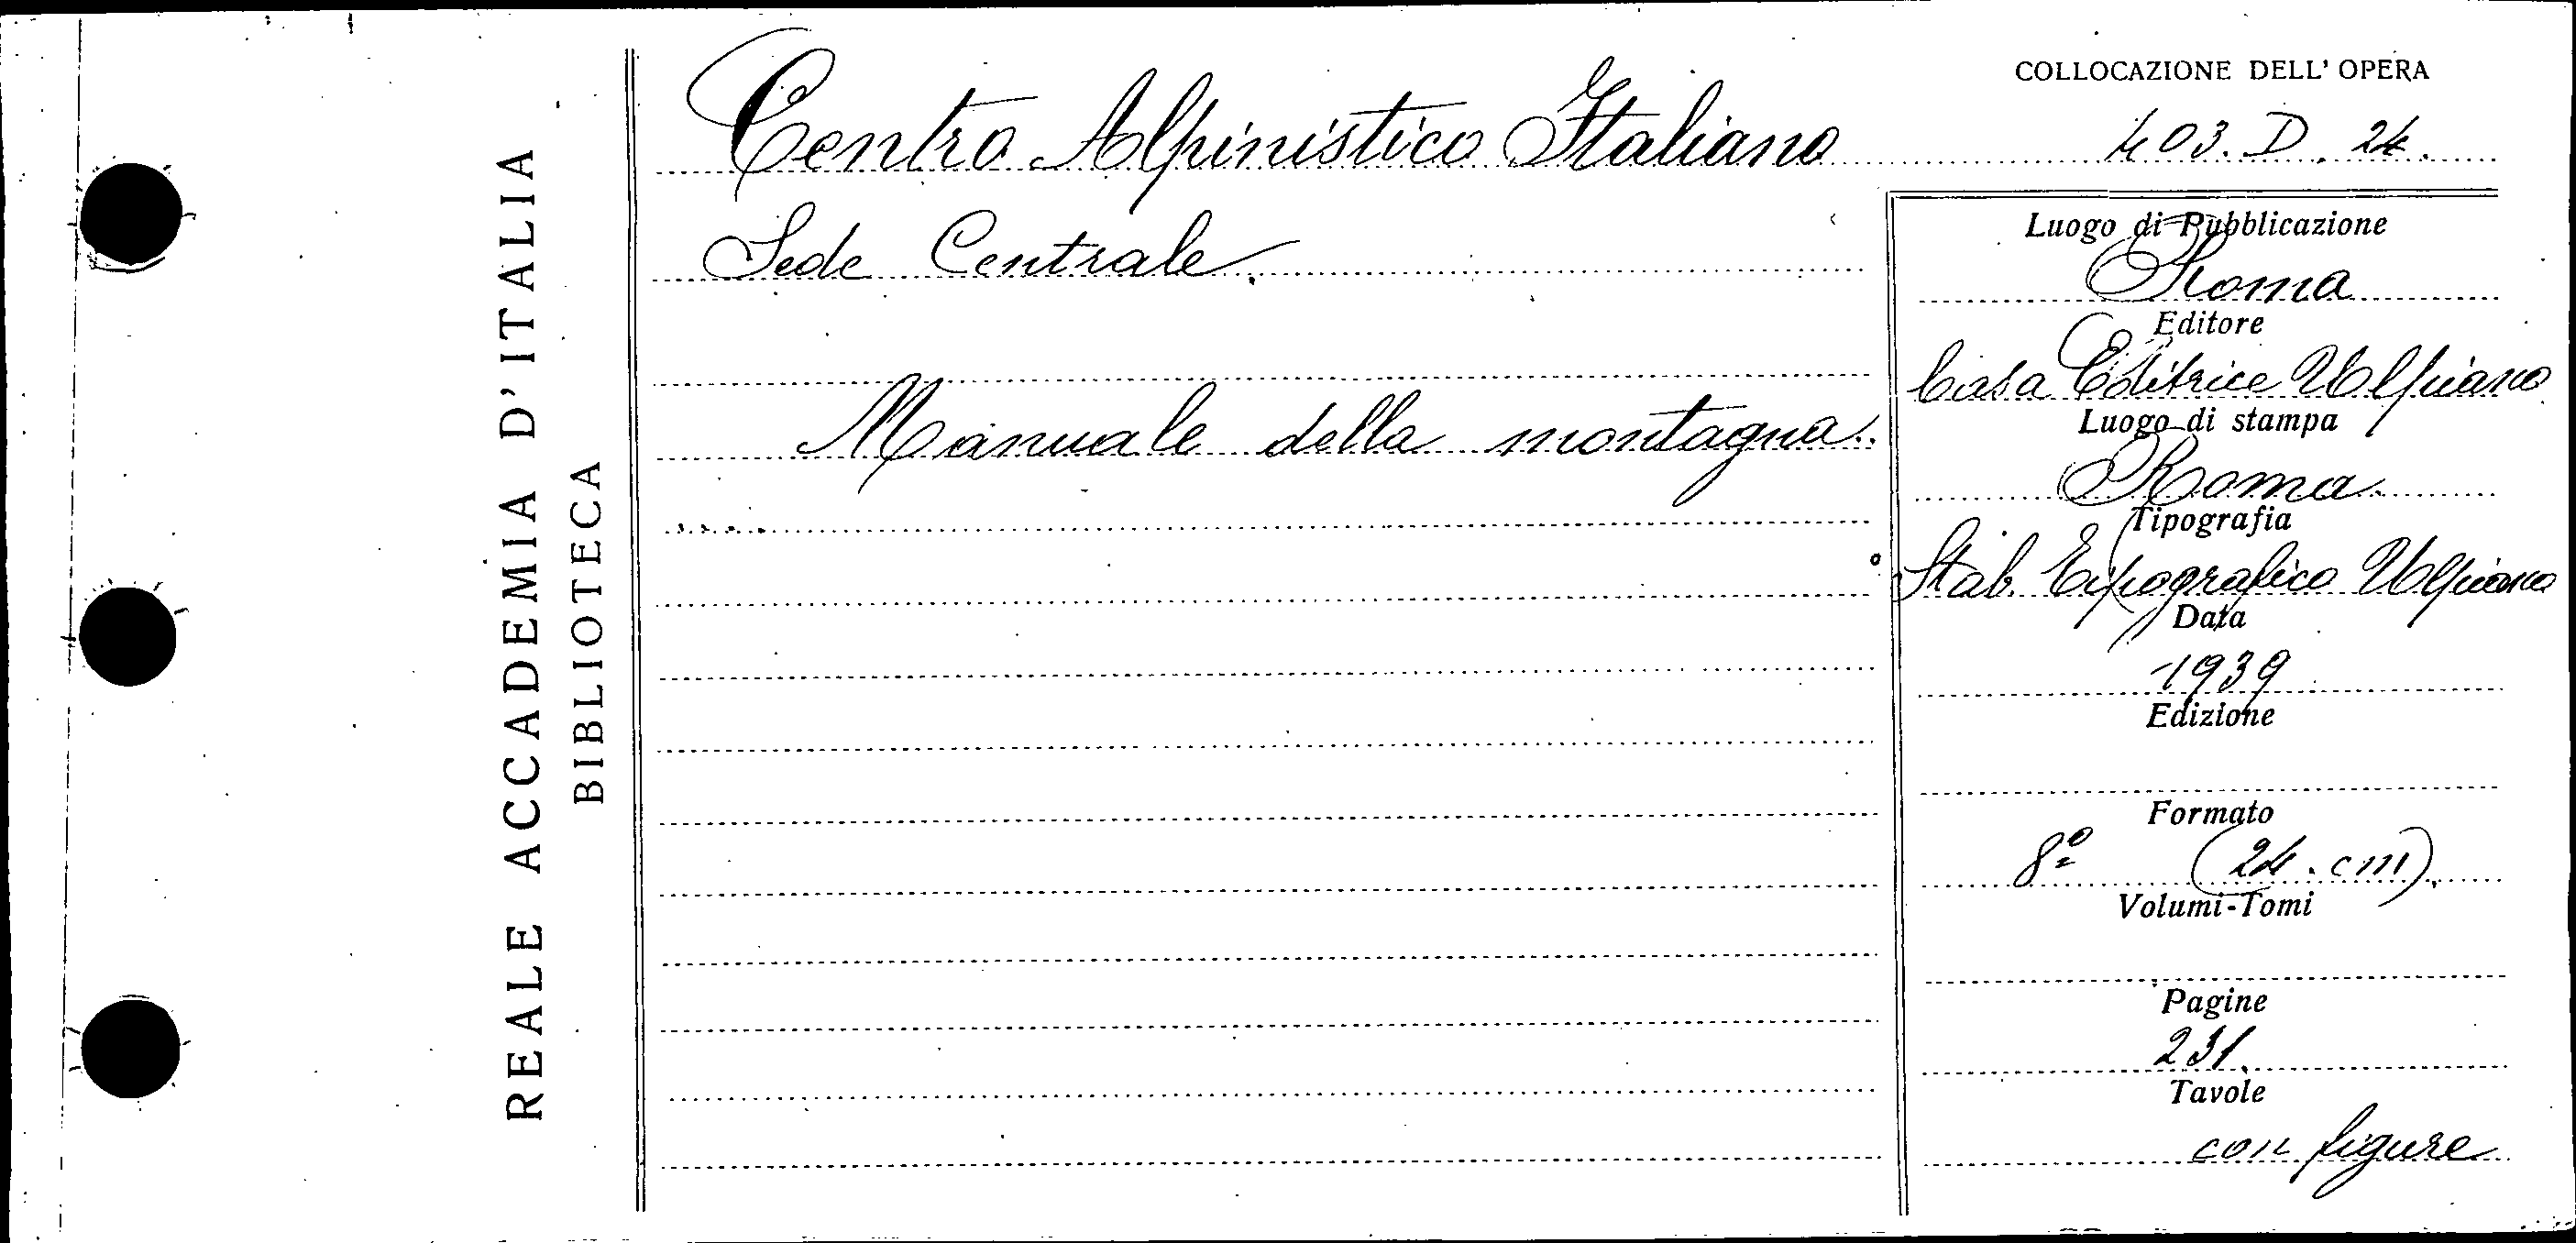 REALE ACCADEMIA D'ITALIA
BIBLIOTECA
Centro Alpinistico Italiano
Sede Centrale.
Manuale della montagna.
COLLOCAZIONE DELL' OPERA
403. D. 24.
Luogo di Pubblicazione
Roma
Editore
Casa Editrice Ulpiano
Luogo di stampa
Roma.
Tipografia
Stab. Tipografico Ulpiano
Data
1939
Edizione
Formato
8º (24. cm).
Volumi-Tomi
Pagine
231.
Tavole
con figure